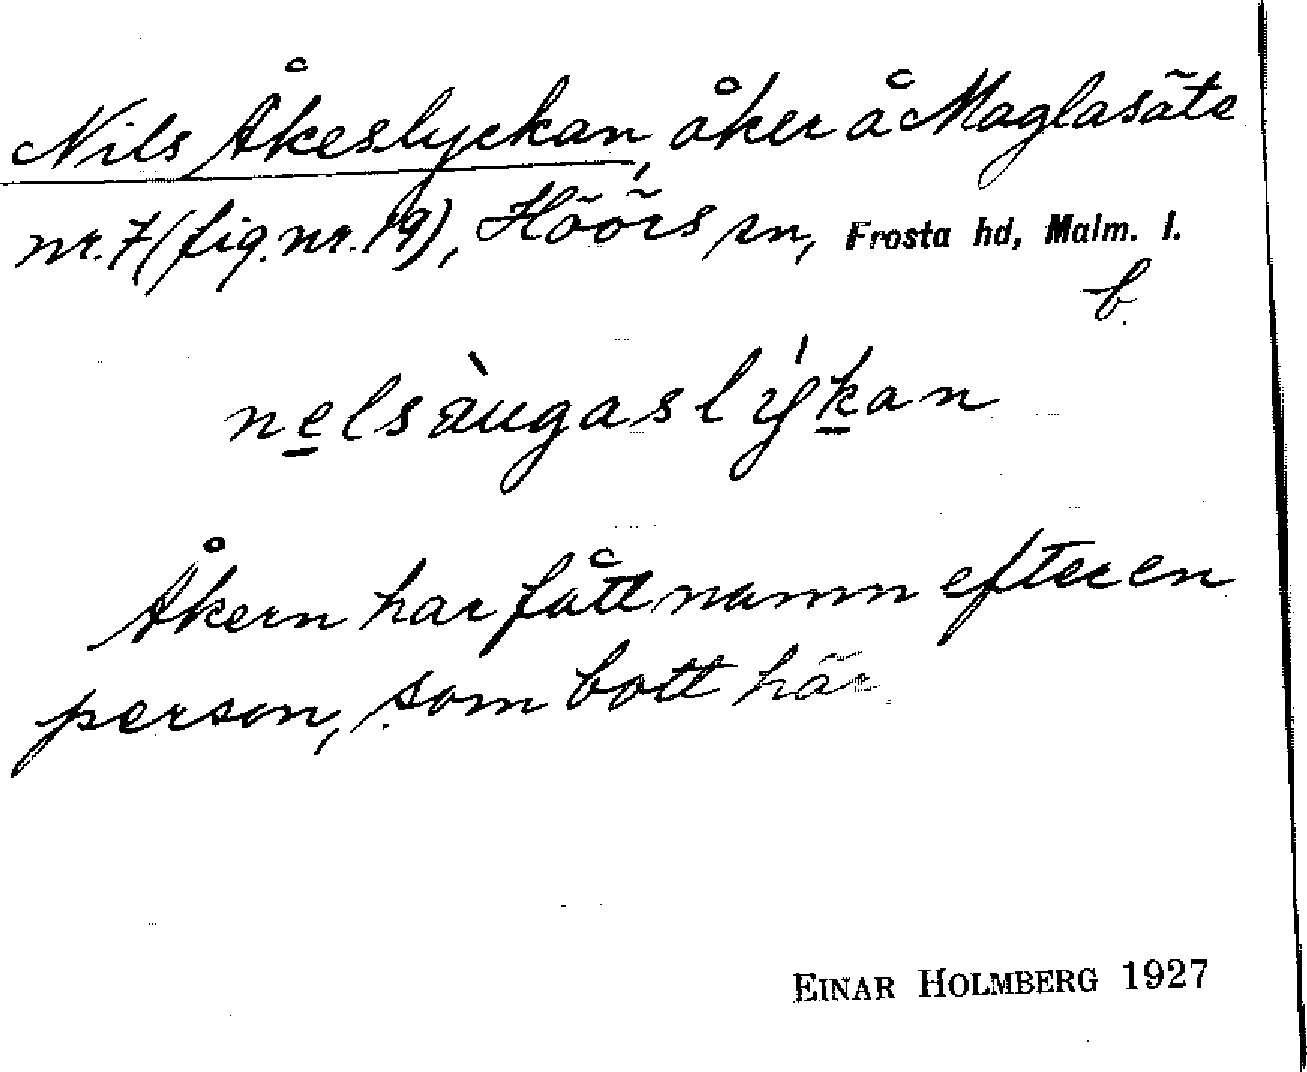 Nils Åkeslyckan, åker å Maglasäte
nr. 7 (fig. nr. 19), Höörs sn, Frosta hd, Malm. l.
b.
nelsàugaslýkan
Åkern har fått namn efter en
person, som bott här.
EINAR HOLMBERG 1927